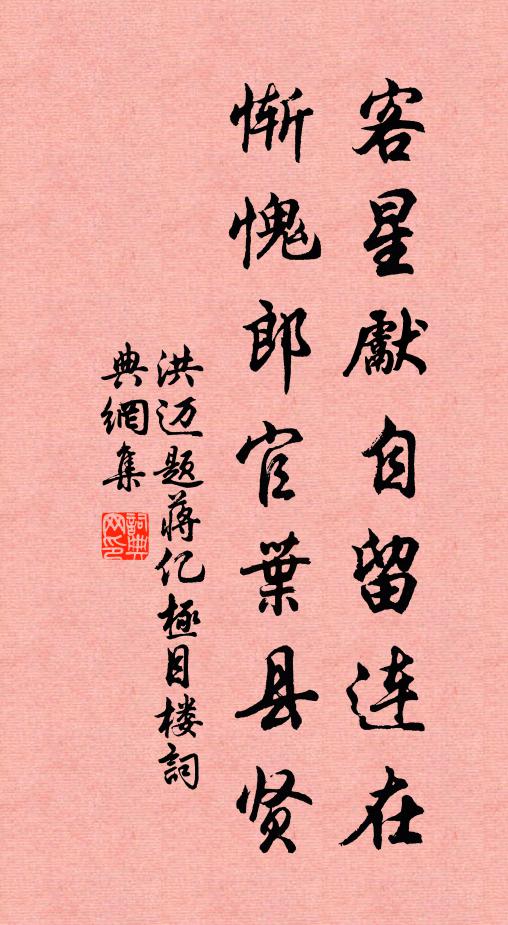 客星獻自留连在
惭愧郎官葉县贤
洪迈题蒋亿極目楼詞
典網集
詞典
网印